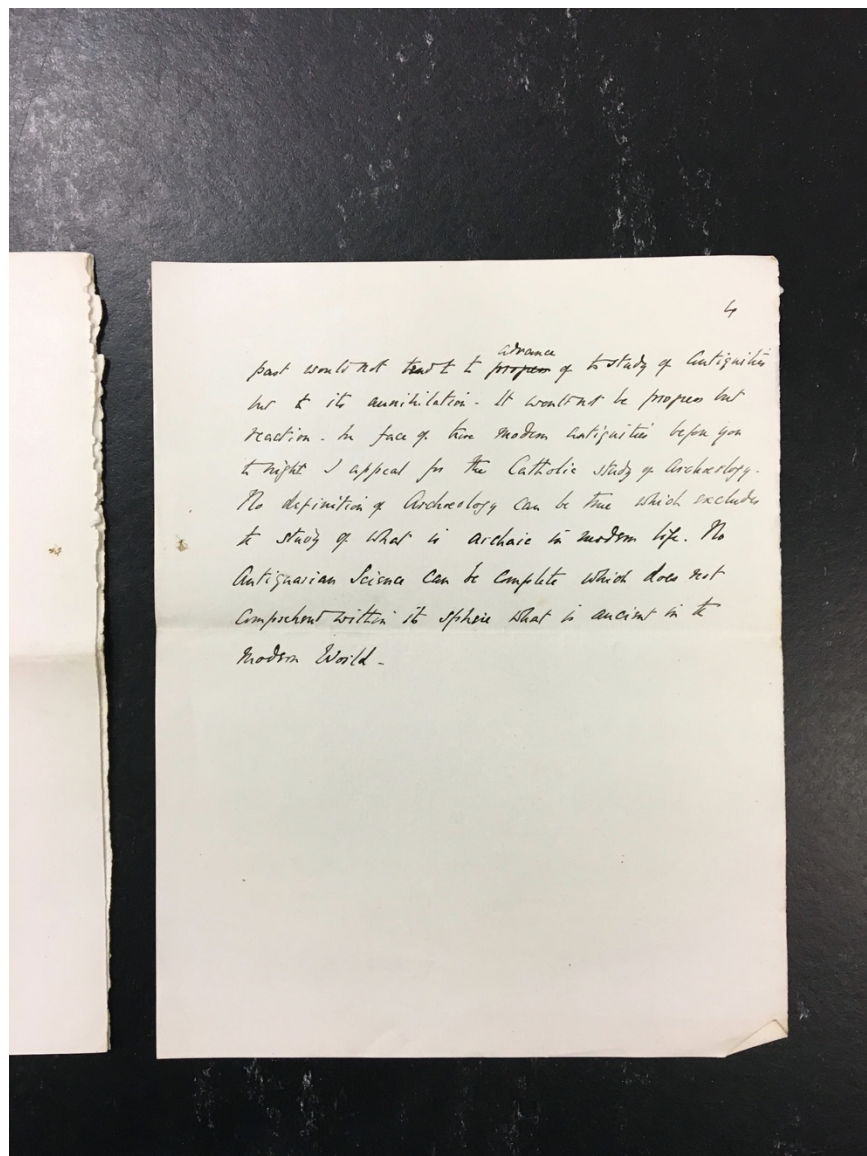 4
advance
past would not tend to to progress of to study of Antiquities
but to its annihilation - It would not be progress but
reaction - In face of these modern Antiquities before you
to night I appeal for the Catholic study of Archæology.
No definition of Archæology can be true which excludes
to study of what is archaic in modern life. No
Antiquarian Science can be complete which does not
comprehend within its sphere what is ancient in to
Modern World -